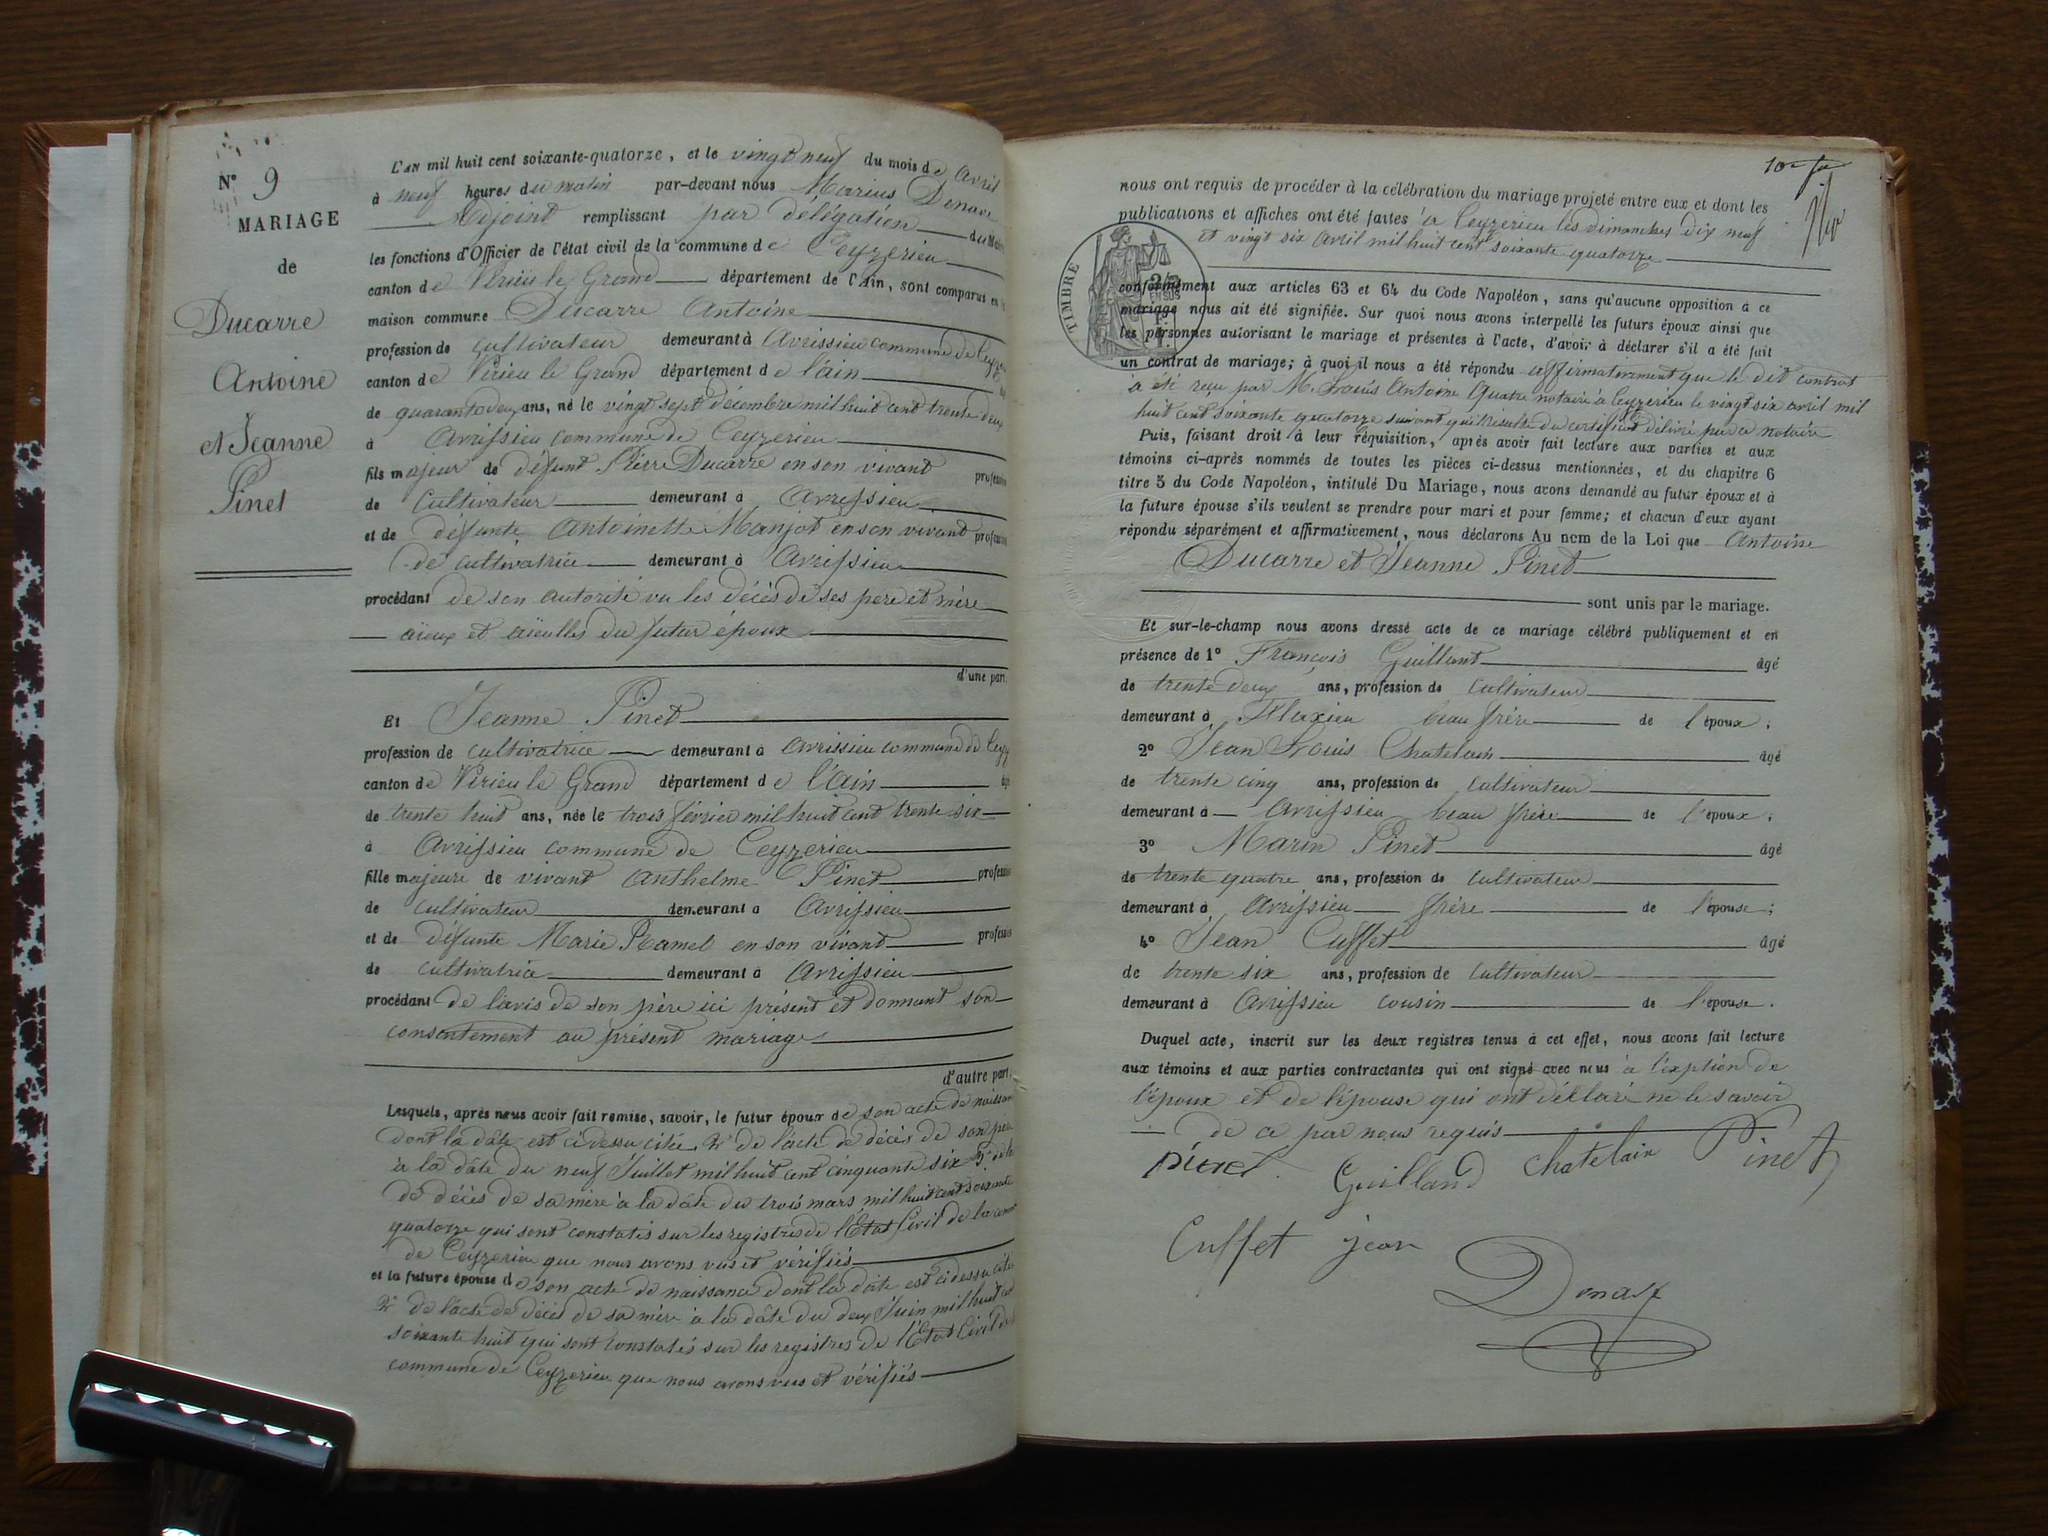 N° 9
MARIAGE
de
Ducarre
Antoine
et Jeanne
Pinet
L'AN mil huit cent soixante-quatorze, et le vingt neuf du mois de avril
à neuf heures du matin par-devant nous Marius Donat
Adjoint remplissant par délégation du
les fonctions d'Officier de l'état civil de la commune de Ceyzerieu
canton de Virieu le Grand département de l'Ain, sont comparus en
maison commune Ducarre Antoine
profession de cultivateur demeurant à Avrissieu commune de
canton de Virieu le Grand département de l'ain
de quarante deux ans, né le vingt sept décembre mil huit cent trente deux
à Avrissieu commune de Ceyzerieu
fils majeur de défunt Pierre Ducarre en son vivant profession
de cultivateur demeurant à Avrissieu
et de défunte Antoinette Manjot en son vivant profession
de cultivatrice demeurant à Avrissieu
procédant de son autorité vu les décès de ses père et mère
aïeux et aïeulles du futur époux
d'une part.
Et Jeanne Pinet
profession de cultivatrice demeurant à Avrissieu commune de Ceyz
canton de Virieu le Grand département de l'Ain
de trente huit ans, née le trois février mil huit cent trente six
à Avrissieu commune de Ceyzerieu
fille majeure de vivant Anthelme Pinet profession
de cultivateur demeurant à Avrissieu
et de défunte Marie Ramel en son vivant profession
de cultivatrice demeurant à Avrissieu
procédant de l'avis de son père ici présent et donnant son
consentement au présent mariage
d'autre part.
Lesquels, après nous avoir fait remise, savoir, le futur époux de son acte de naissance
dont la dâte est ci dessu citée 2° de l'acte de décès de son père
à la dâte du neuf Juillet mil huit cent cinquante six 3°
de décès de sa mère à la dâte du trois mars mil huit cent soixante
quatorze qui sont constatés sur les registres de l'Etat Civil de la
de Ceyzerieu que nous avons vus et vérifiés
et la future épouse de son acte de naissance dont la dâte est ci dessu citée
2° de l'acte de décès de sa mère à la dâte du deux Juin mil huit cent
soixante huit qui sont constatés sur les registres de l'Etat Civil de la
commune de Ceyzerieu que nous avons vus et vérifiés
nous ont requis de procéder à la célébration du mariage projeté entre eux et dont les
publications et affiches ont été faites à Ceyzerieu les dimanches dix neuf
et vingt six avril mil huit cent soixante quatorze
TIMBRE
conformément aux articles 63 et 64 du Code Napoléon, sans qu'aucune opposition à ce
mariage nous ait été signifiée. Sur quoi nous avons interpellé les futurs époux ainsi que
les personnes autorisant le mariage et présentes à l'acte, d'avoir à déclarer s'il a été fait
un contrat de mariage; à quoi il nous a été répondu affirmativement que le dit contrat
a été reçu par M. Louis Antoine Quatre notaire à Ceyzerieu le vingt six avril mil
huit cent soixante quatorze suivant qu'il résulte du certificat délivré par ce notaire
Puis, faisant droit à leur réquisition, après avoir fait lecture aux parties et aux
témoins ci-après nommés de toutes les pièces ci-dessus mentionnées, et du chapitre 6
titre 5 du Code Napoléon, intitulé Du Mariage, nous avons demandé au futur époux et à
la future épouse s'ils veulent se prendre pour mari et pour femme; et chacun d'eux ayant
répondu séparément et affirmativement, nous déclarons Au nom de la Loi que Antoine
Ducarre et Jeanne Pinet
sont unis par le mariage.
Et sur-le-champ nous avons dressé acte de ce mariage célébré publiquement et en
présence de 1° François Guilland âgé
de trente deux ans, profession de cultivateur
demeurant à Flaxieu beau frère de l'époux;
2° Jean Louis Chatelain âgé
de trente cinq ans, profession de cultivateur
demeurant à Avrissieu beau frère de l'époux;
3° Marin Pinet âgé
de trente quatre ans, profession de cultivateur
demeurant à Avrissieu frère de l'épouse;
4° Jean Cuffet âgé
de trente six ans, profession de cultivateur
demeurant à Avrissieu cousin de l'épouse.
Duquel acte, inscrit sur les deux registres tenus à cet effet, nous avons fait lecture
aux témoins et aux parties contractantes qui ont signé avec nous à l'exption de
l'époux et de l'épouse qui ont déclaré ne le savoir
de ce par nous requis
pinet Guilland Chatelain Pinet
Cuffet jean
Donat